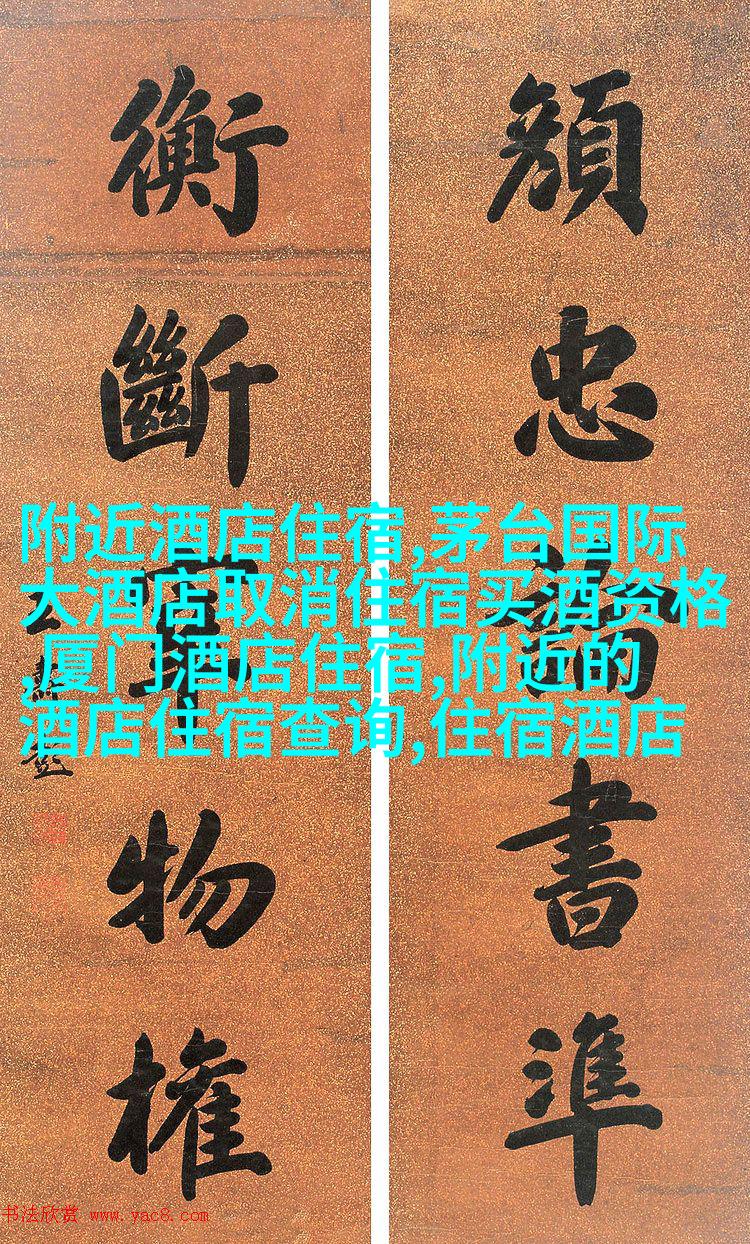 忠
書
準
衡
斷
物
權
附近酒店住宿,茅台国际
大酒店取消住宿买酒资格
,厦门酒店住宿,附近的
酒店住宿查询,住宿酒店
书法欣赏 www.yac8.com